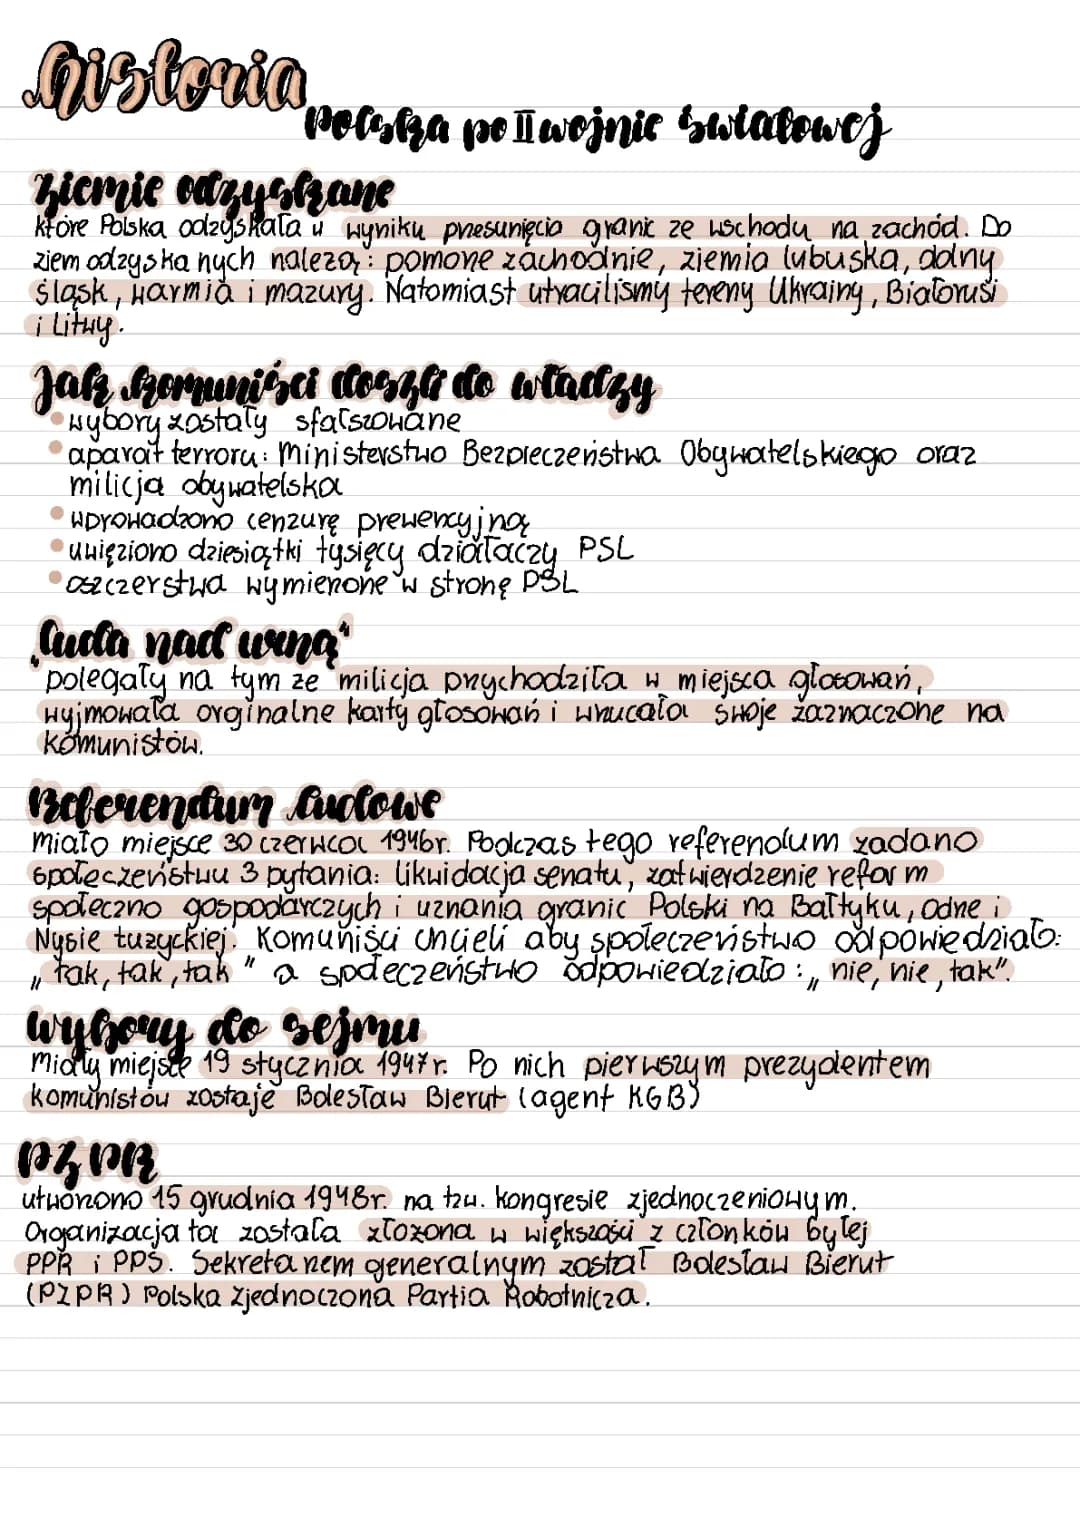 historia
Polska po II wojnie światowej
Ziemie odzyskane
które Polska odzyskała w wyniku przesunięcia granic ze wschodu na zachód. Do
ziem odzyskanych należą: pomorze zachodnie, ziemia lubuska, dolny
śląsk, warmia i mazury. Natomiast utraciliśmy tereny Ukrainy, Białorusi
i Litwy.
Jak komuniści doszli do władzy
• wybory zostały sfałszowane
• aparat terroru: Ministerstwo Bezpieczeństwa Obywatelskiego oraz
milicja obywatelska
• wprowadzono cenzurę prewencyjną
• uwięziono dziesiątki tysięcy działaczy PSL
• oszczerstwa wymierzone w stronę PSL
„Cuda nad urną"
polegały na tym że milicja przychodziła w miejsca głosowań,
wyjmowała orginalne karty głosowań i wrzucała swoje zaznaczone na
komunistów.
Referendum ludowe
Miało miejsce 30 czerwca 1946r. Podczas tego referendum zadano
społeczeństwu 3 pytania: likwidacja senatu, zatwierdzenie reform
społeczno gospodarczych i uznania granic Polski na Bałtyku, Odrze i
Nysie łużyckiej. Komuniści chcieli aby społeczeństwo odpowiedziało:
„tak, tak, tak" a społeczeństwo odpowiedziało: „nie, nie, tak".
Wybory do sejmu
Miały miejsce 19 stycznia 1947r. Po nich pierwszym prezydentem
komunistów zostaje Bolesław Bierut (agent KGB)
PZPR
utworzono 15 grudnia 1948r. na tzw. kongresie zjednoczeniowym.
Organizacja ta została złożona w większości z członków byłej
PPR i PPS. Sekretarzem generalnym został Bolesław Bierut
(PZPR) Polska Zjednoczona Partia Robotnicza.